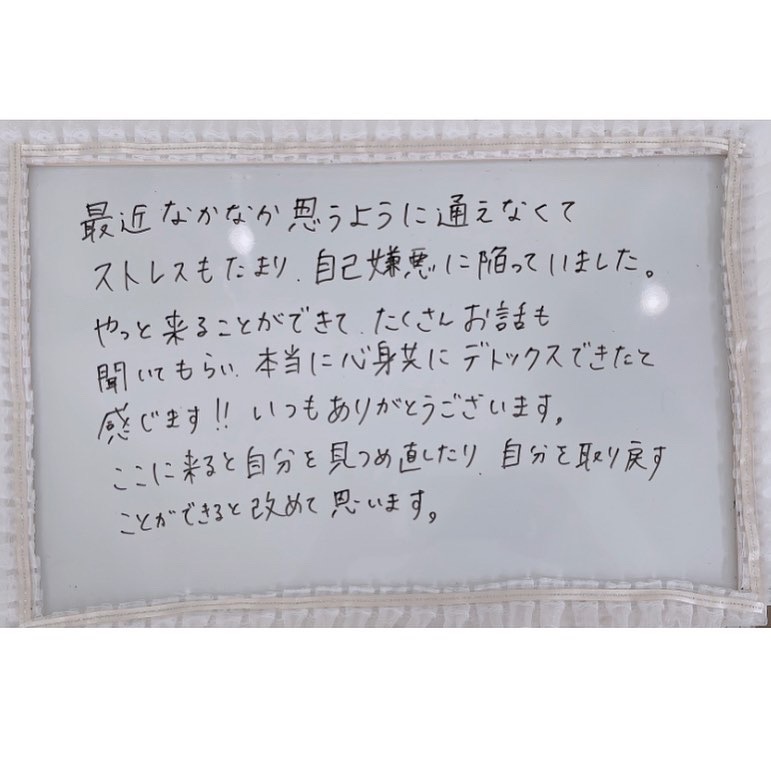 最近なかなか思うように通えなくて
ストレスもたまり、自己嫌悪に陥っていました。
やっと来ることができて、たくさんお話も
聞いてもらい、本当に心身共にデトックスできたと
感じます!! いつもありがとうございます。
ここに来ると自分を見つめ直したり、自分を取り戻す
ことができると改めて思います。